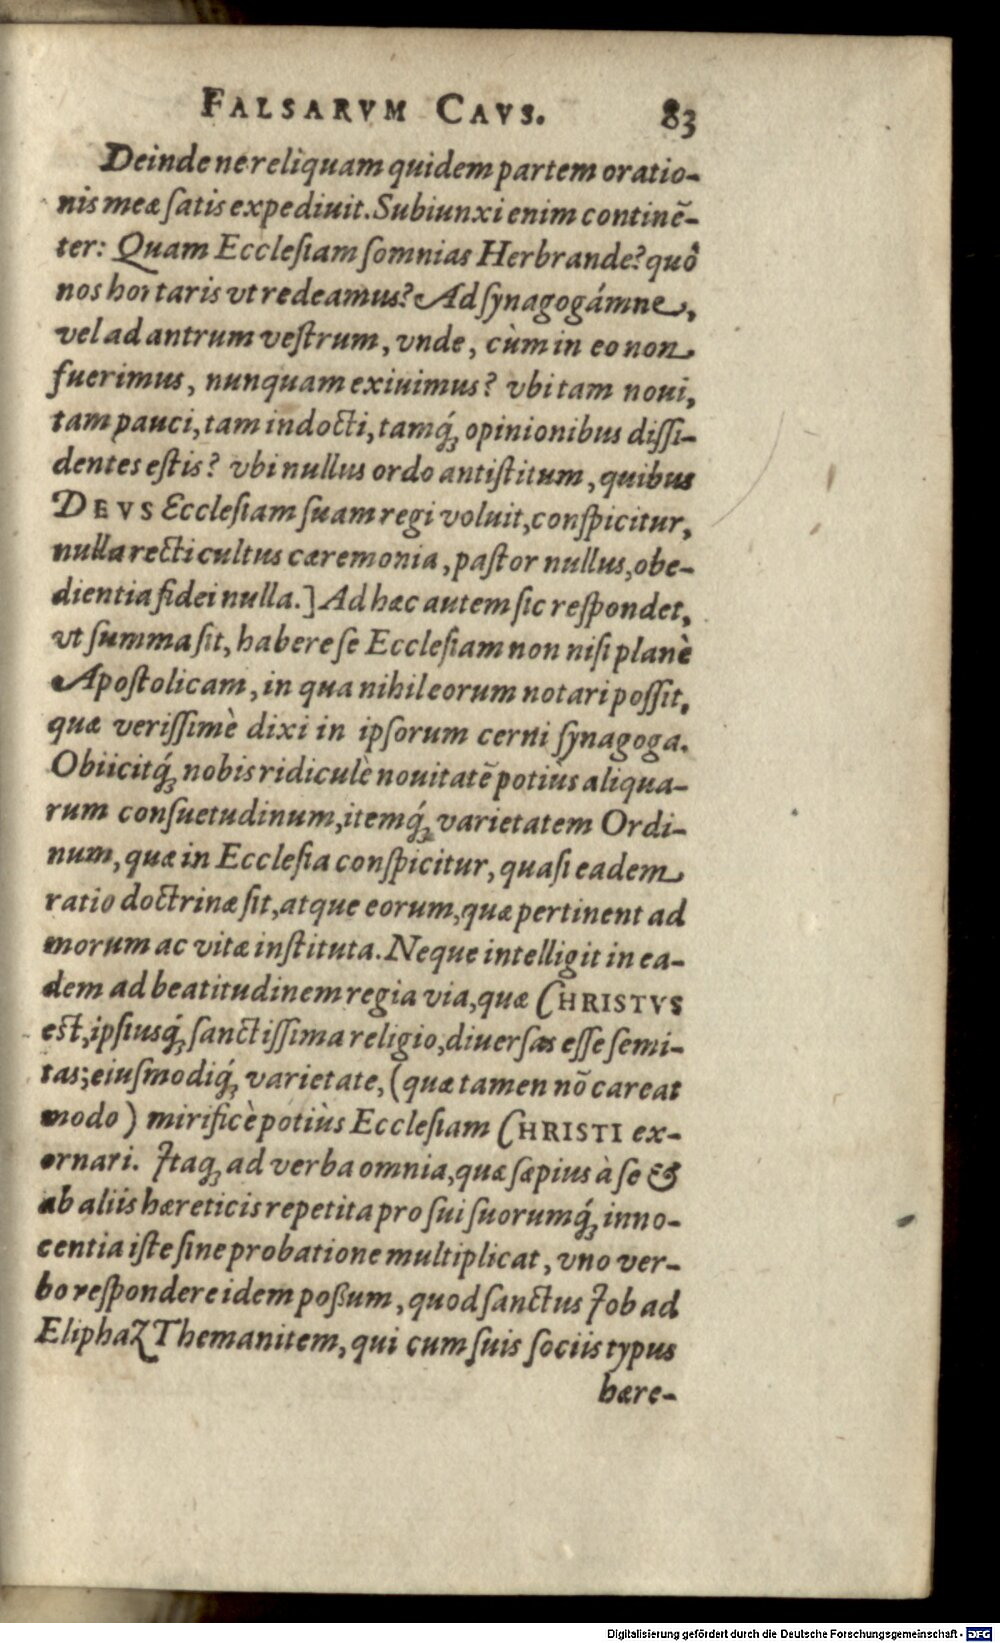 FALSARVM CAVS. 83
Deinde ne reliquam quidem partem oratio-
nis meæ ſatis expediuit. Subiunxi enim continẽ-
ter: Quam Eccleſiam ſomnias Herbrande? quò
nos hortaris vt redeamus? Ad ſynagogámne,
vel ad antrum veſtrum, vnde, cùm in eo non
fuerimus, nunquam exiuimus? vbi tam noui,
tam pauci, tam indocti, tamq́; opinionibus diſſi-
dentes eſtis? vbi nullus ordo antiſtitum, quibus
DEVS Eccleſiam ſuam regi voluit, conſpicitur,
nulla recti cultus cæremonia, paſtor nullus, obe-
dientia fidei nulla.] Ad hæc autem ſic reſpondet,
vt ſumma ſit, habere ſe Eccleſiam non niſi planè
Apoſtolicam, in qua nihil eorum notari poſſit,
quæ veriſſimè dixi in ipſorum cerni ſynagoga.
Obiicitq́; nobis ridiculè nouitatẽ potiùs aliqua-
rum conſuetudinum, itemq́; varietatem Ordi-
num, quæ in Eccleſia conſpicitur, quaſi eadem
ratio doctrinæ ſit, atque eorum, quæ pertinent ad
morum ac vitæ inſtituta. Neque intelligit in ea-
dem ad beatitudinem regia via, quæ CHRISTVS
eſt, ipſiusq́; ſanctiſſima religio, diuerſas eſſe ſemi-
tas; eiuſmodiq́; varietate, (quæ tamen nõ careat
modo) mirificè potiùs Eccleſiam CHRISTI ex-
ornari. Itaq; ad verba omnia, quæ ſæpius à ſe &
ab aliis hæreticis repetita pro ſui ſuorumq́; inno-
centia iſte ſine probatione multiplicat, vno ver-
bo reſpondere idem poßum, quod ſanctus Iob ad
Eliphaz Themanitem, qui cum ſuis ſociis typus
hære-
Digitalisierung gefördert durch die Deutsche Forschungsgemeinschaft - DFG